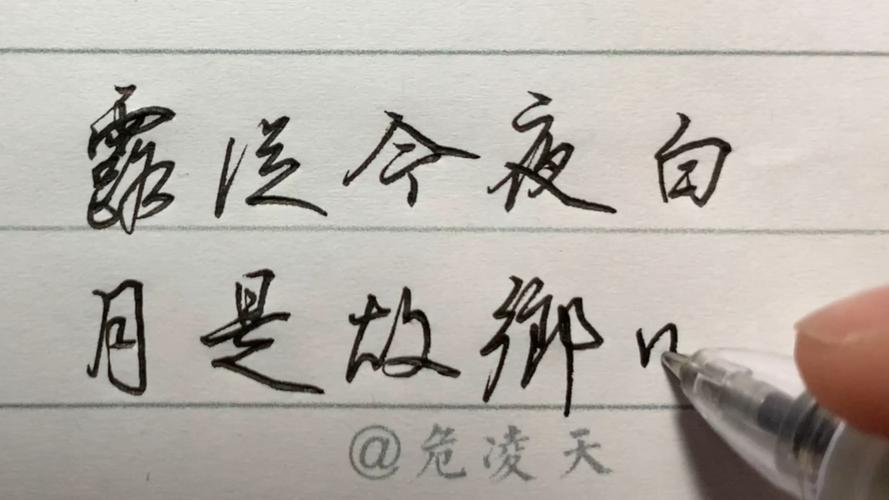 露从今夜白
月是故鄉
@危凌天